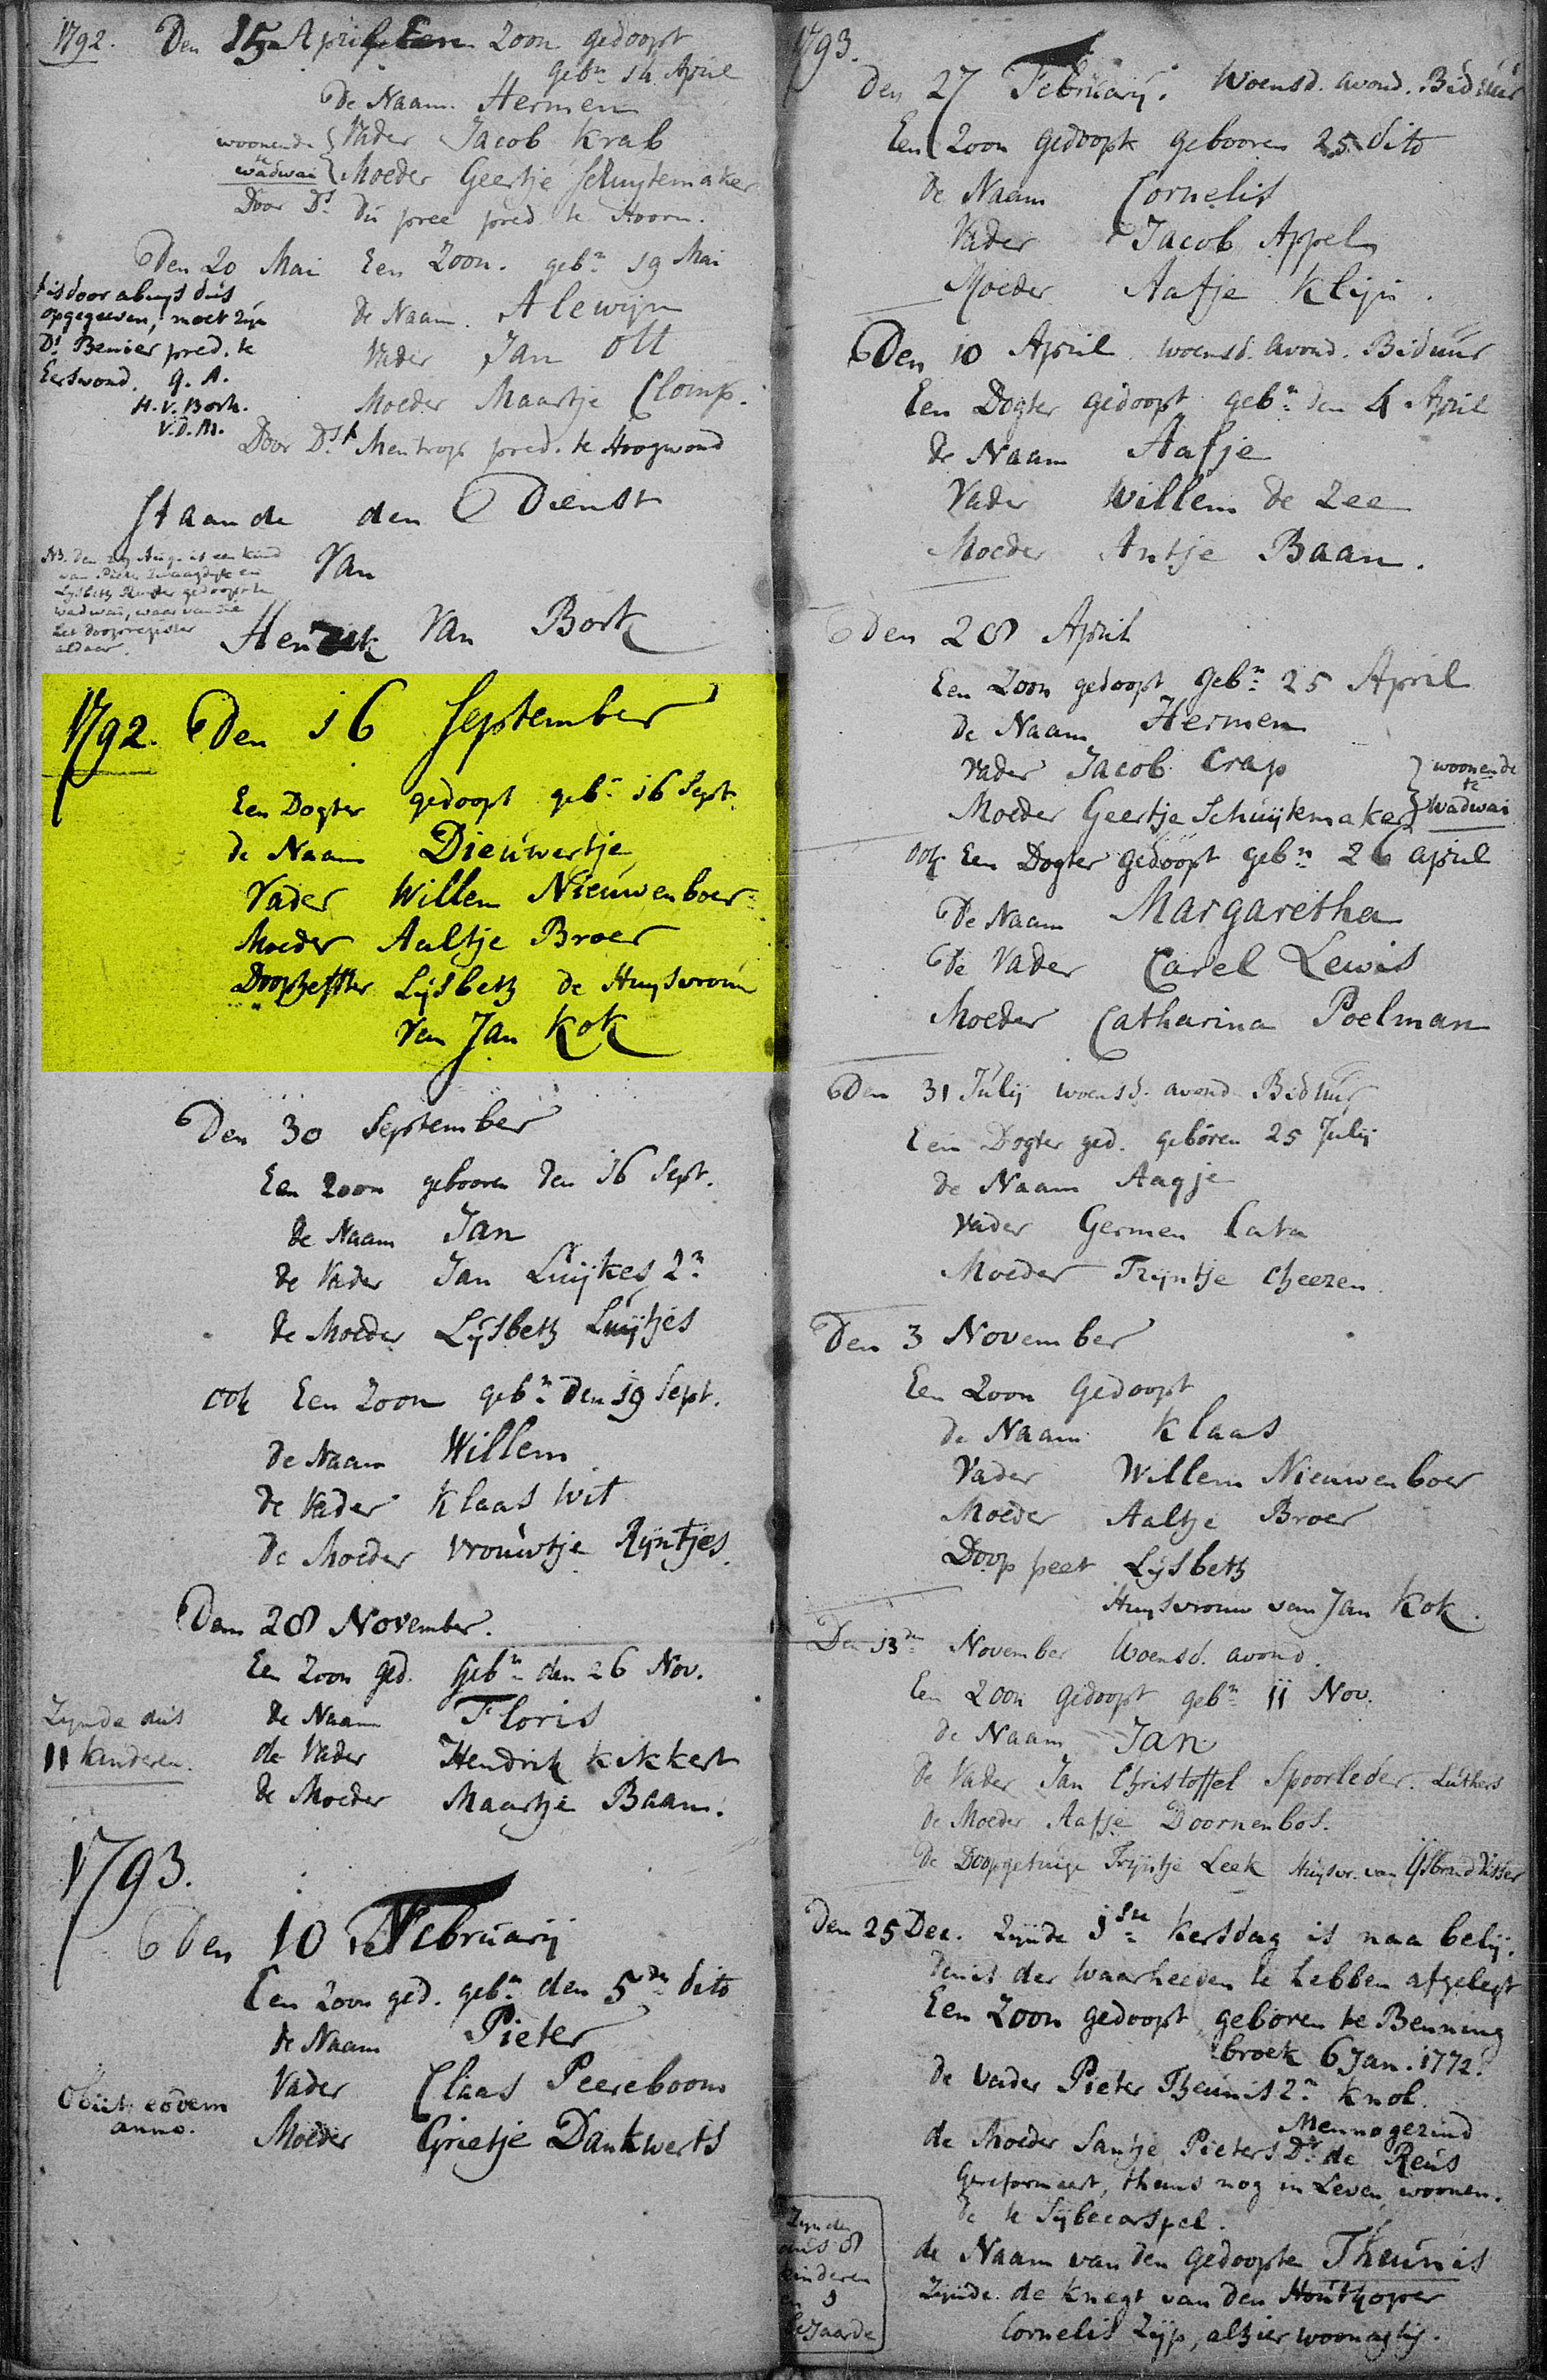 1792. Den 15 April Een Zoon gedoopt
gebn 14 April
De Naam Hermen
woonende Vader Jacob Krab
te
wadwai Moeder Geertje Schuytemaker
Door Ds. du pree pred te Hoorn.
Den 20 Mai Een Zoon. gebn 19 Mai
de Naam. Alewijn
Vader Jan Ott
Moeder Maartje Clomp.
Door Ds. † Mentrop pred. te Hoogwoud
† is door abuys dus
opgegeeven, moet zyn
Ds. pred. te
Eertswoud. q. A.
H. V. Bork.
V.D.M.
Staande den Dienst
Van
Hendrik Van Bork
NB. den 29 Aug. is een kind
van Pieter Zwaagdyk en
Lysbeth gedoopt te
wadwai, waar van zie
het doopregister
aldaar.
1792. Den 16 September
Een Dogter gedoopt gebn 16 Sept.
de Naam Dieuwertje
Vader Willem Nieuwenboer
Moeder Aaltje Broer
Doopheffster Lijsbeth de Huysvrouw
Van Jan Kok
Den 30 September
Een Zoon gebooren den 16 Sept.
de Naam Jan
de Vader Jan Luijkes Zn
de Moeder Lijsbeth Luijtjes
ook Een Zoon gebn den 19 Sept.
de Naam Willem
de Vader Klaas Wit
de Moeder Vrouwtje Rijntjes.
Den 28 November.
Een Zoon ged. gebn den 26 Nov.
de Naam Floris
de Vader Hendrik Kikkert
de Moeder Maartje Baan.
Zynde dus
11 kinderen.
1793.
Den 10 February
Een Zoon ged. gebn den 5de dito
de Naam Pieter
Vader Claas Peereboom
Moeder Grietje Dankwerts
Obiit eodem
anno.
1793.
Den 27 February. Woensd. avond. Biduur
Een Zoon gedoopt gebooren 25 dito
de Naam Cornelis
Vader Jacob Appel
Moeder Aafje Klijn.
Den 10 April woensd. avond. Biduur
Een Dogter gedoopt gebn den 4 April
de Naam Aafje
Vader Willem de Zee
Moeder Antje Baan.
Den 28 April
Een Zoon gedoopt gebn 25 April
de Naam Hermen
Vader Jacob Crap woonende
te
Moeder Geertje Schuijtemaker Wadwai
ook Een Dogter gedoopt gebn 26 april
De Naam Margaretha
De Vader Carel Lewis
Moeder Catharina Poelman
Den 31 Julij woensd. avond Biduur
Een Dogter ged. geboren 25 Julij
de Naam Aagje
Vader Germen Cata
Moeder Trijntje Cheezen
Den 3 November
Een Zoon Gedoopt
de Naam Klaas
Vader Willem Nieuwenboer
Moeder Aaltje Broer
Doop peet Lijsbeth
Huysvrouw van Jan Kok.
Den 13den November Woensd. avond.
Een Zoon gedoopt gebn 11 Nov.
de Naam Jan
de Vader Jan Christoffel Spoorleder. Luthers
de Moeder Aafje Doornenbos.
De Doopgetuige Trijntje Leek Huysvr. van IJsbrand Visser
Den 25 Dec. Zijnde 1ste kersdag is naa belij-
denis der waarheeden te hebben afgelegt
Een Zoon gedoopt geboren te Benning
broek 6 Jan. 1772.
de Vader Pieter Theunis Zn Knol.
Mennogezind
de Moeder Santje Pieters Dr. de Reus
Gereformeert, thans nog in Leven, woonen-
de te Sijbecarspel.
de Naam van den gedoopte Theunis
Zijnde de knegt van den Houtkoper
Cornelis Zijp, alhier woonagtig.
Zynde
dus 8
kinderen
en 1
bejaarde